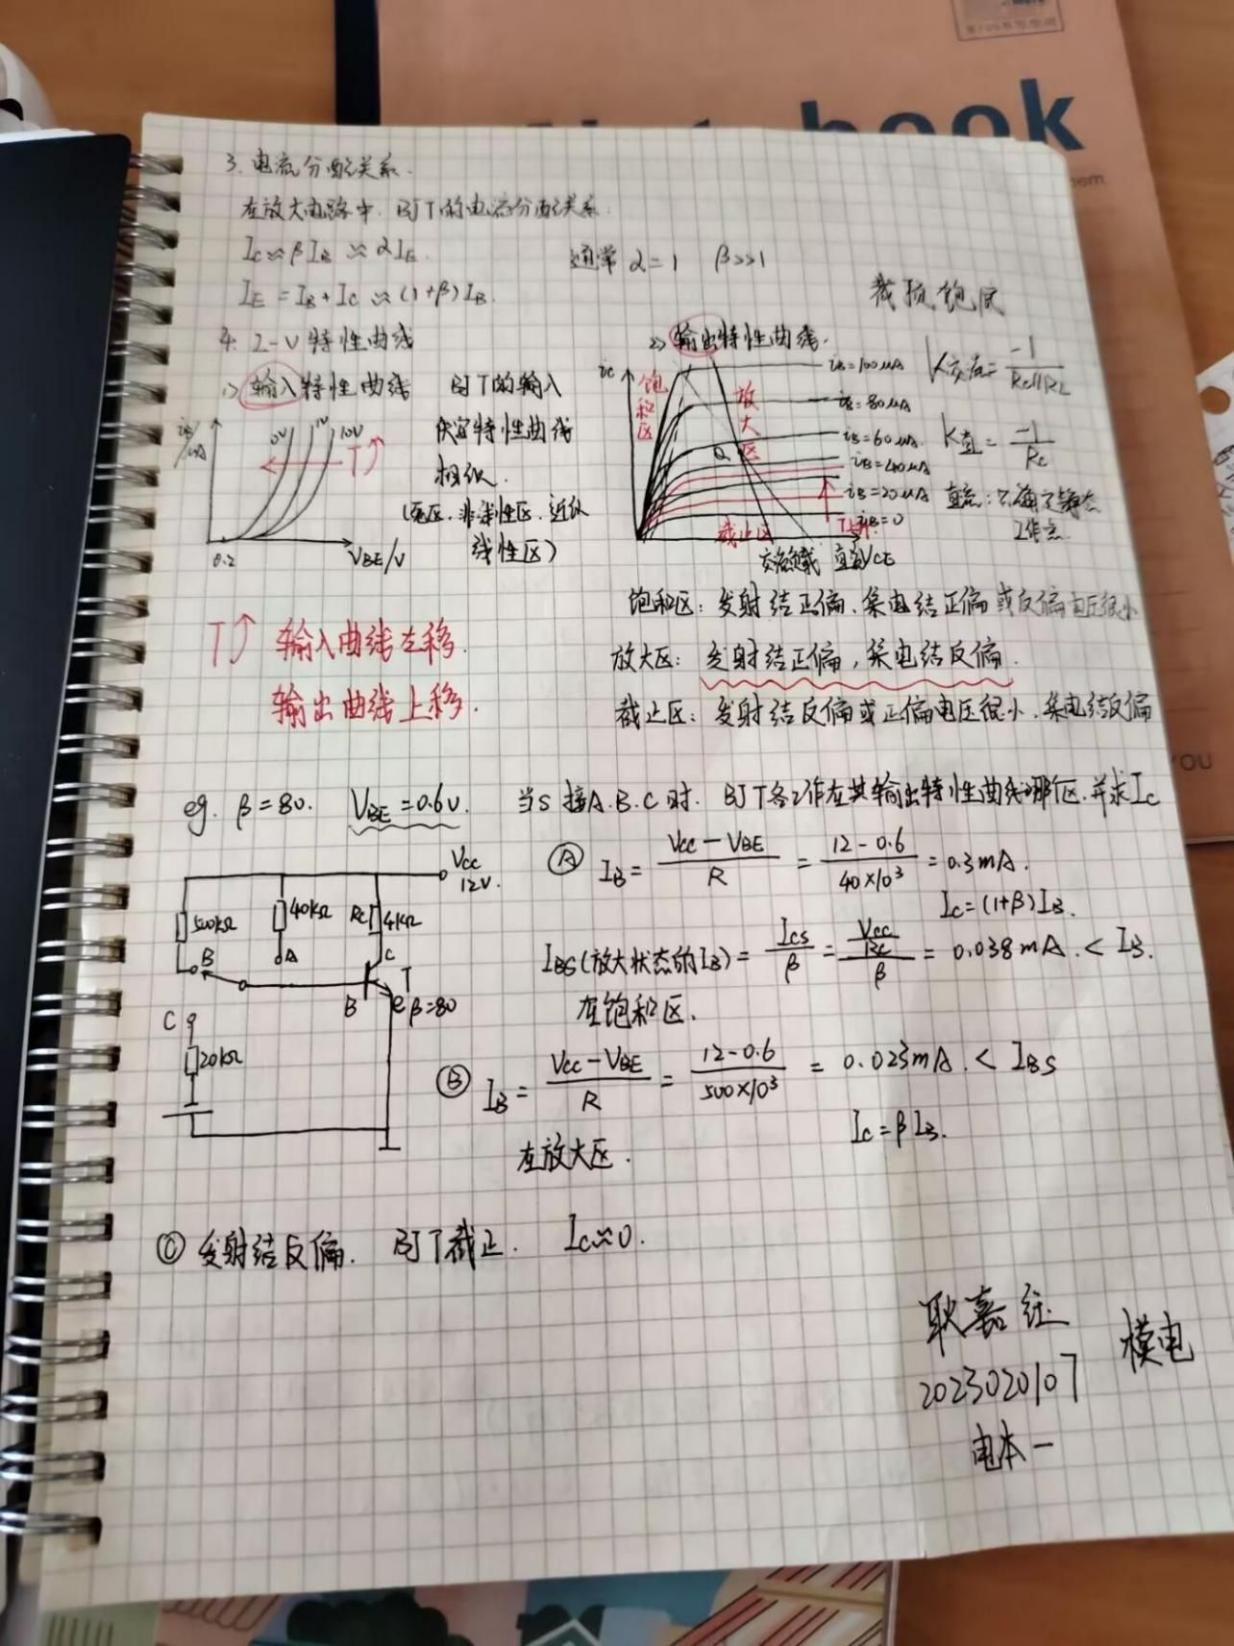 Notebook
3. 电流分配关系.
在放大电路中. BJT的电流分配关系:
Ic≈βIB ≈αIE.
通常 α=1 β>>1
IE=IB+Ic≈(1+β)IB.
截顶饱底
4. I-V特性曲线
1) 输入特性曲线 BJT的输入
伏安特性曲线
相似.
(死区. 非线性区. 近似
线性区)
iB/μA
0V 1V 10V
T↑
0.2 VBE/V
2) 输出特性曲线.
ic
饱和区
放大区
截止区
Q
iB=100μA
iB=80μA
iB=60μA
iB=40μA
iB=20μA
iB=0
交流负载 直流VCE
K交流=-1/Rc//RL
K直=-1/Rc
直流: 只确定静态
工作点
饱和区: 发射结正偏. 集电结正偏或反偏电压很小
T↑ 输入曲线左移.
输出曲线上移.
放大区: 发射结正偏, 集电结反偏.
截止区: 发射结反偏或正偏电压很小. 集电结反偏
eg. β=80. VBE=0.6V. 当S接A.B.C时. BJT各工作在其输出特性曲线哪个区. 并求Ic
Vcc
12V.
500kΩ
40kΩ
Rc 4kΩ
B
A
C
B
e β=80
C
20kΩ
Ⓐ IB=Vcc-VBE/R=12-0.6/40×10³=0.3mA.
Ic=(1+β)IB.
IBS(放大状态的IB)=Ics/β=Vcc/Rc/β=0.038mA.<IB.
在饱和区.
Ⓑ IB=Vcc-VBE/R=12-0.6/500×10³=0.023mA.<IBS
Ic=βIB.
在放大区.
Ⓒ 发射结反偏. BJT截止. Ic≈0.
模电
2023020107
电本一